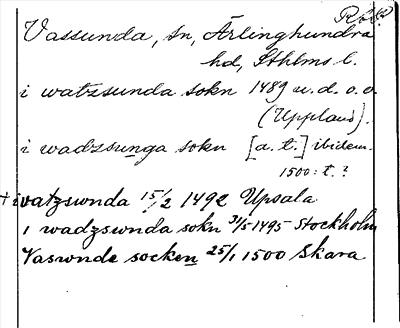 Vassunda, sn, Ärlinghundra
hd, Sthlms l.
i watzsunda sokn 1489 u. d. o. o.
(Uppland).
i wadzsunga sokn [a. t.] ibidem.
1500: t. ?
† i vatzswnda 15/2 1492 Upsala
i wadzswnda sokn 31/5 1495 Stockholm
Vaswnde socken 25/1 1500 Skara